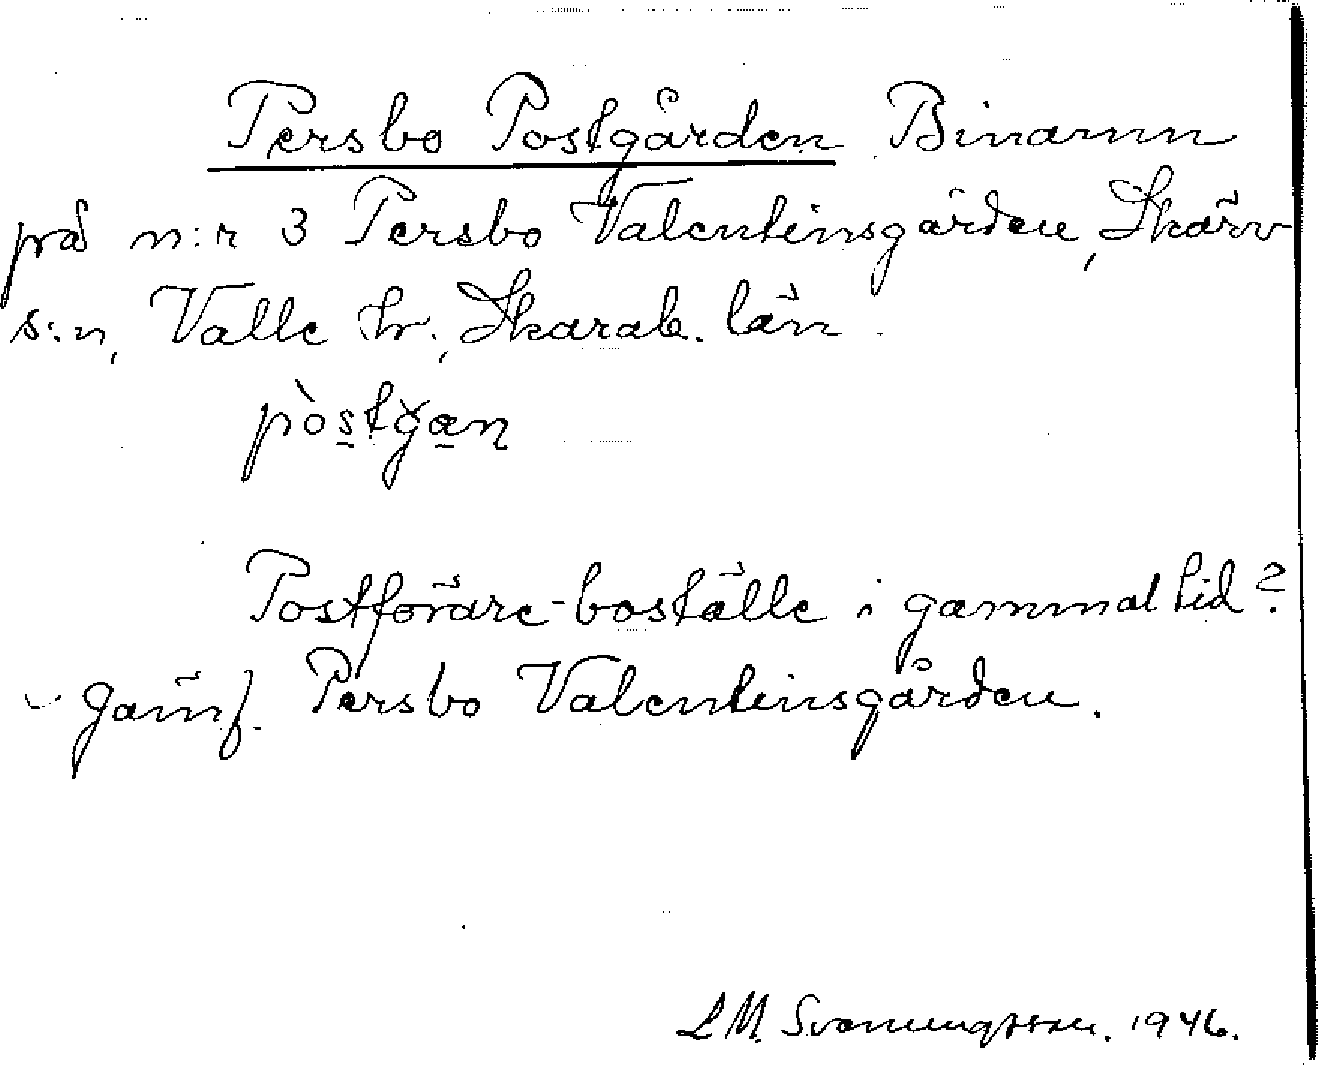 Persbo Postgården Binamn
på n:r 3 Persbo Valentinsgården, Skärv
s:n, Valle hr., Skarab. län.
pòstgan
Postförare-boställe i gammal tid?
Jämf. Persbo Valentinsgården.
L M. Svenungsson. 1946.